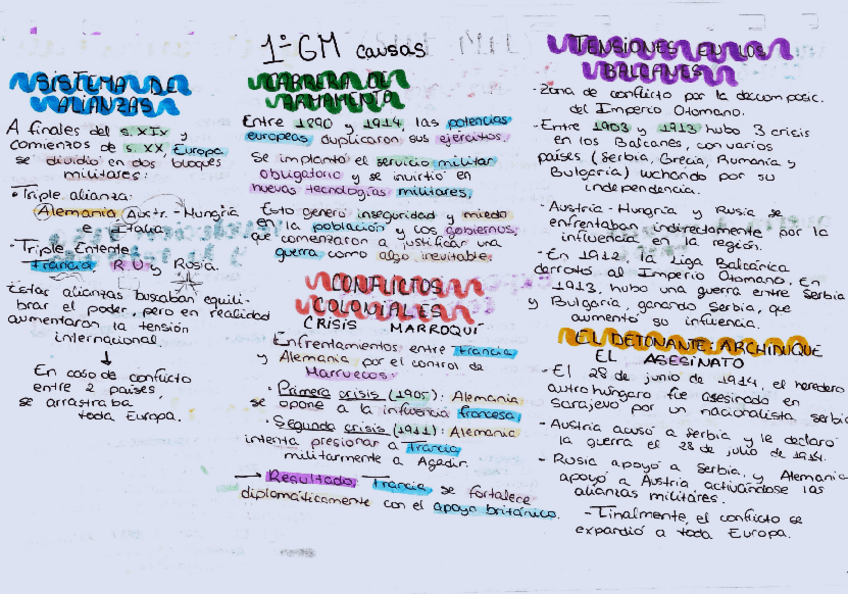 1º GM causas
SISTEMA DE
ALIANZAS
A finales del s. XIX y
comienzos de s. XX Europa
se dividió en dos bloques
militares:
• Triple alianza:
Alemania, Austr. - Hungría
e Italia
• Triple Entente
Francia, R U y Rusia.
Estar alianzas buscaban equili-
brar el poder, pero en realidad
aumentaron la tensión
internacional.
↓
En caso de conflicto
entre 2 países,
se arrastraba
toda Europa.
CARRERA DE
ARMAMENTO
Entre 1890 y 1914, las potencias
europeas duplicaron sus ejércitos.
Se implantó el servicio militar
obligatorio y se invirtió en
nuevas tecnologías militares.
Esto generó inseguridad y miedo
en la población y los gobiernos,
que comenzaron a justificar una
guerra como algo inevitable.
CONFLICTOS
COLONIALES
CRISIS MARROQUÍ
Enfrentamientos entre Francia
y Alemania por el control de
Marruecos:
• Primera crisis (1905): Alemania
se opone a la influencia francesa,
• Segunda crisis (1911): Alemania
intenta presionar a Francia
militarmente a Agadir.
→ Resultado, Francia se fortalece
diplomáticamente con el apoyo británico.
TENSIONES EN LOS
BALCANES
- Zona de conflicto por la descomposic.
del Imperio Otomano.
- Entre 1903 y 1913 hubo 3 crisis
en los Balcanes, con varios
países (Serbia, Grecia, Rumanía y
Bulgaria) luchando por su
independencia.
- Austria-Hungría y Rusia se
enfrentaban indirectamente por la
influencia en la región.
- En 1912, la Liga Balcánica
derrotó al Imperio Otomano. En
1913, hubo una guerra entre Serbia
y Bulgaria, ganando Serbia, que
aumentó su influencia.
EL DETONANTE: ARCHIDUQUE
EL ASESINATO
- El 28 de junio de 1914, el heredero
austrohúngaro fue asesinado en
Sarajevo por un nacionalista serbio
- Austria acusó a Serbia y le declaró
la guerra el 28 de julio de 1914.
- Rusia apoyó a Serbia, y Alemania
apoyó a Austria, activándose las
alianzas militares.
- Finalmente, el conflicto se
expandió a toda Europa.